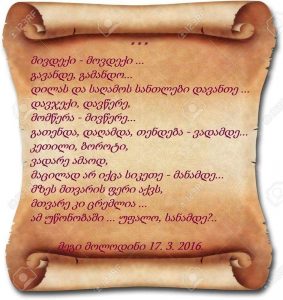 ***
მივდექი - მოვდექი ...
გავანდე, გამანდო...
დილას და საღამოს სანთლები დავანთე ...
დავჯექი, დავწერე,
მომწერა - მივწერე...
გათენდა, დაღამდა, თენდება - ვადამდე...
კეთილი, ბოროტი,
ვადარე ამაოდ,
მაცილად არ იქცა სიკეთე - მანამდე...
მზეს მთვარის ფერი აქვს,
მთვარე კი ცრემლია ...
ამ უწონობაში ... უფალო, სანამდე?..
მეგი მოლოდინი 17. 3. 2016.
123RF